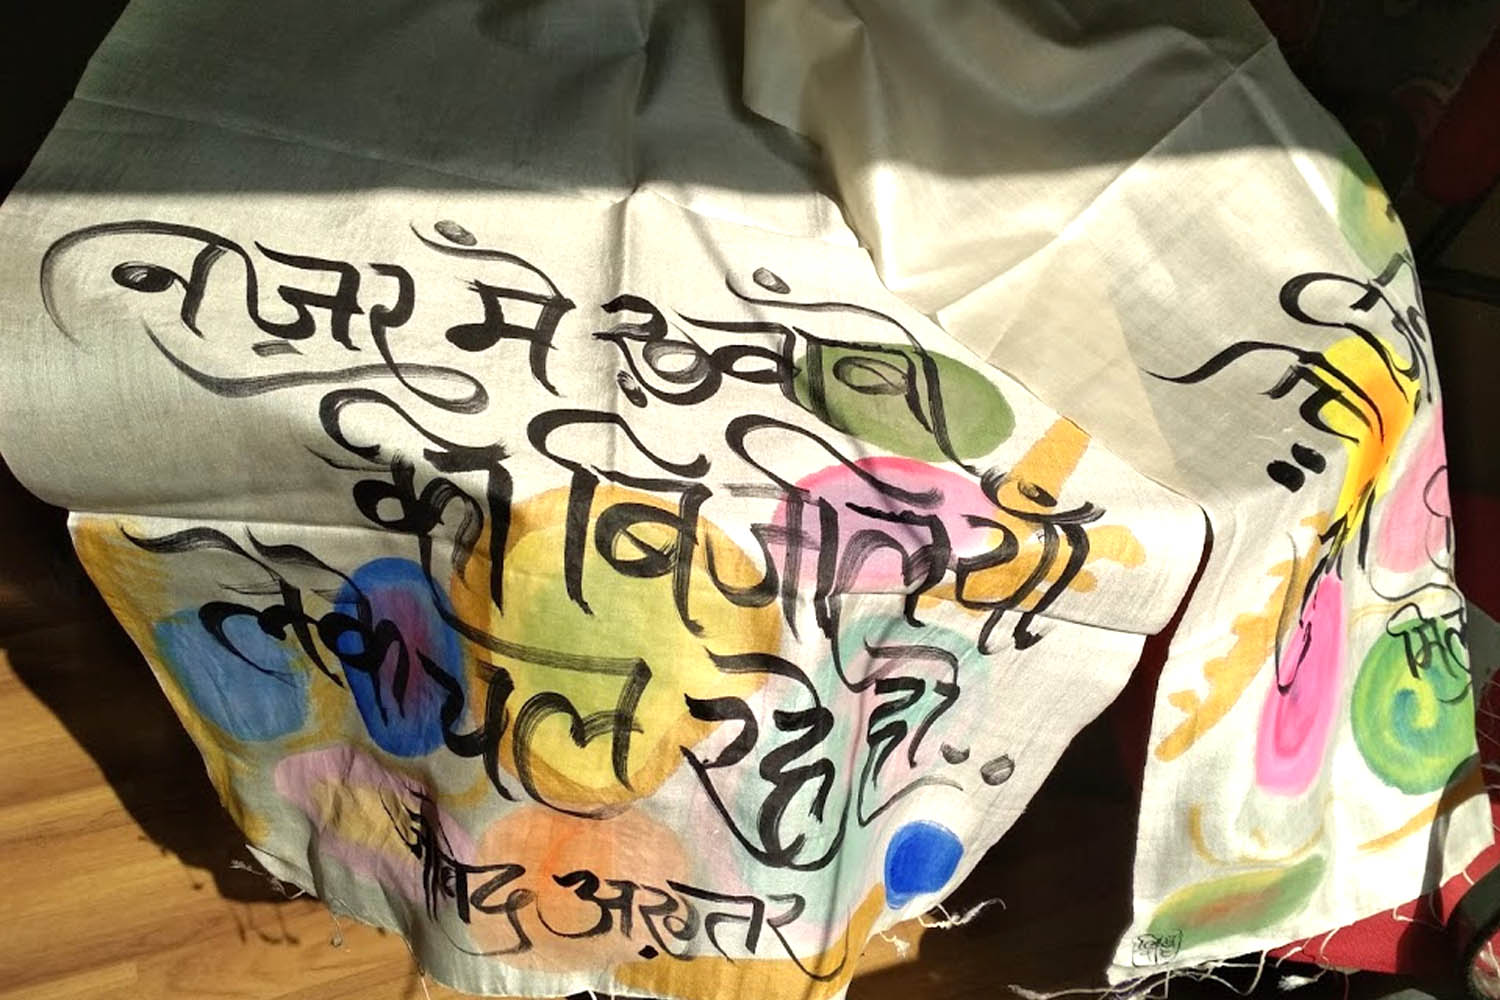 नज़र में ख़्वाबों
की बिजलियाँ
लेके चल रहे हो..
जावेद अख़्तर